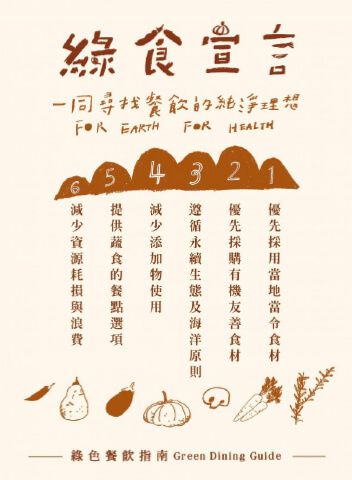 綠食宣言
一同尋找餐飲的純淨理想
FOR EARTH FOR HEALTH
1
優先採用當地當令食材
2
優先採購有機友善食材
3
遵循永續生態及海洋原則
4
減少添加物使用
5
提供蔬食的餐點選項
6
減少資源耗損與浪費
綠色餐飲指南 Green Dining Guide